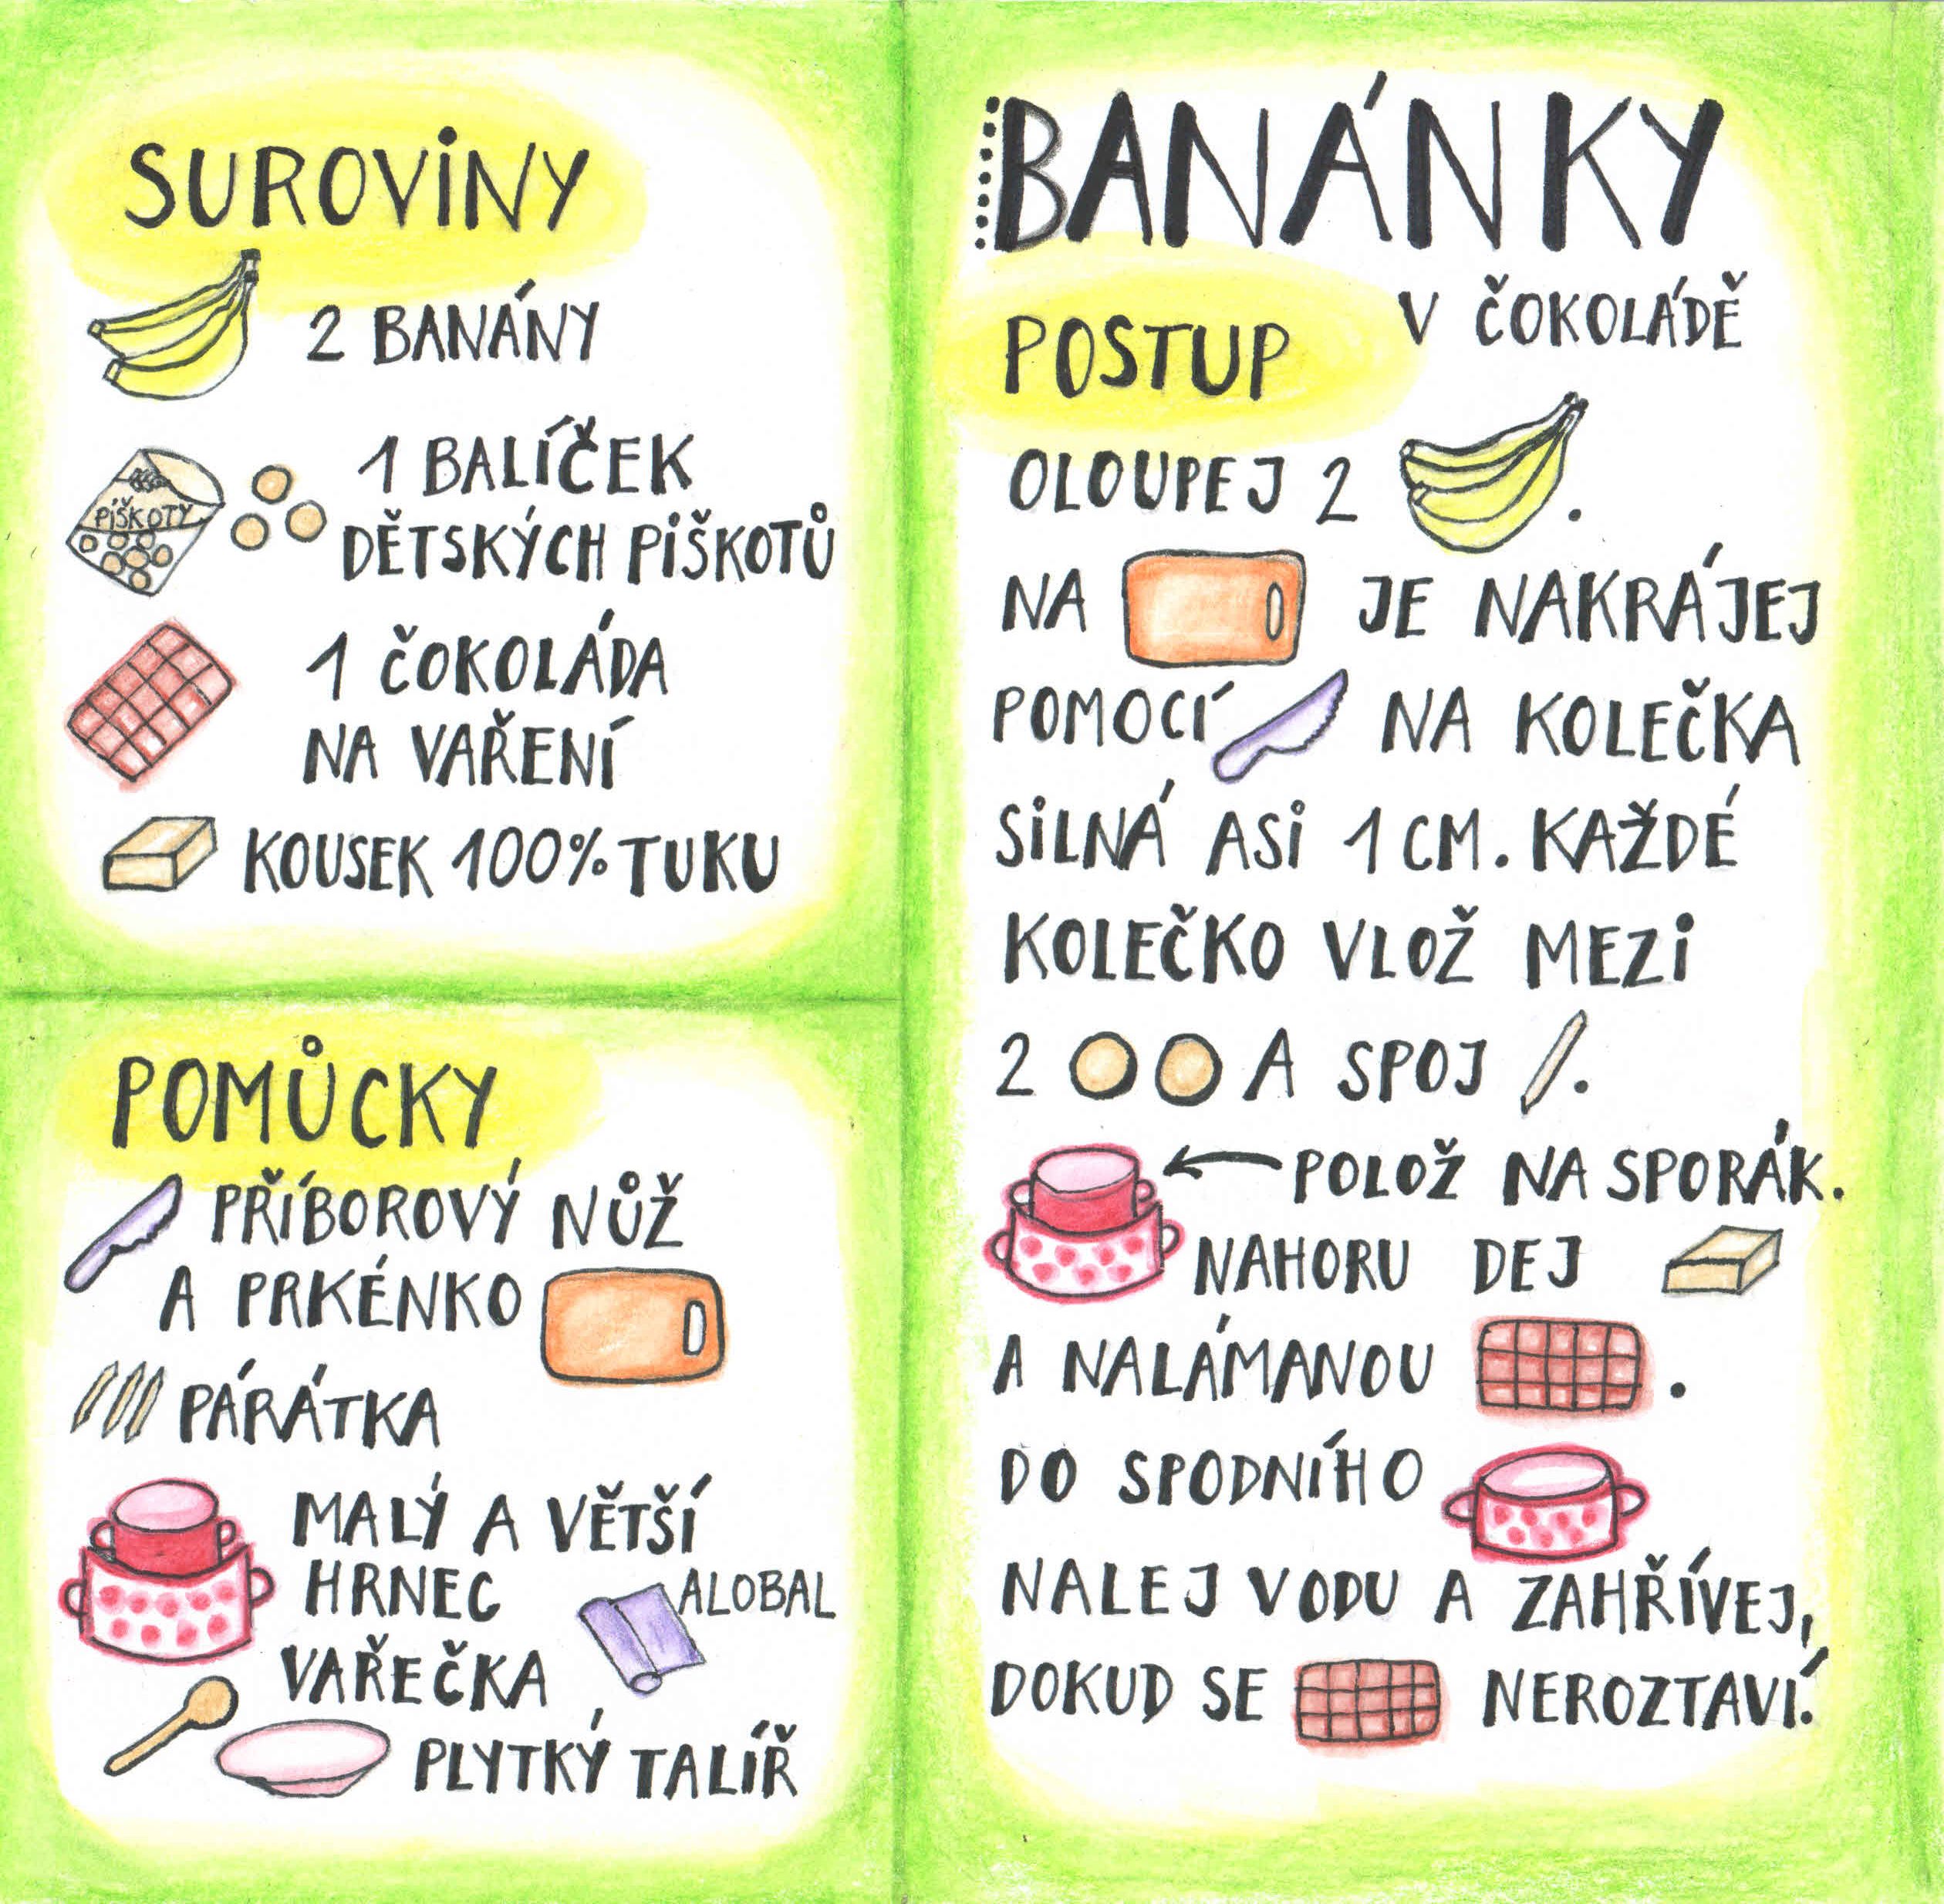 SUROVINY
2 BANÁNY
1 BALÍČEK
DĚTSKÝCH PIŠKOTŮ
PIŠKOTY
1 ČOKOLÁDA
NA VAŘENÍ
KOUSEK 100% TUKU
POMŮCKY
PŘÍBOROVÝ NŮŽ
A PRKÉNKO
PÁRÁTKA
MALÝ A VĚTŠÍ
HRNEC
ALOBAL
VAŘEČKA
PLYTKÝ TALÍŘ
BANÁNKY
V ČOKOLÁDĚ
POSTUP
OLOUPEJ 2 .
NA JE NAKRÁJEJ
POMOCÍ NA KOLEČKA
SILNÁ ASI 1 CM. KAŽDÉ
KOLEČKO VLOŽ MEZI
2 A SPOJ .
POLOŽ NA SPORÁK.
NAHORU DEJ
A NALÁMANOU .
DO SPODNÍHO
NALEJ VODU A ZAHŘÍVEJ,
DOKUD SE NEROZTAVÍ.